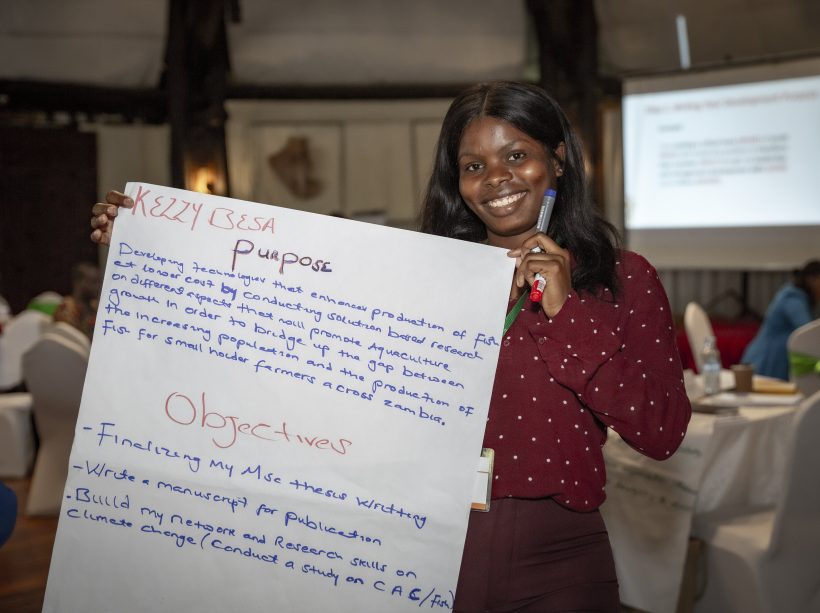 KEZZY BESA
Purpose
Developing technologies that enhances production of fish
at lower cost by conducting solution based research
on different aspects that will promote Aquaculture
growth in order to bridge up the gap between
the increasing population and the production of
Fish for small holder farmers across zambia.
Objectives
- Finalizing My Msc thesis writting
- Write a manuscript for publication
- Build my network and Research skills on
climate change (Conduct a study on CAC/fish)